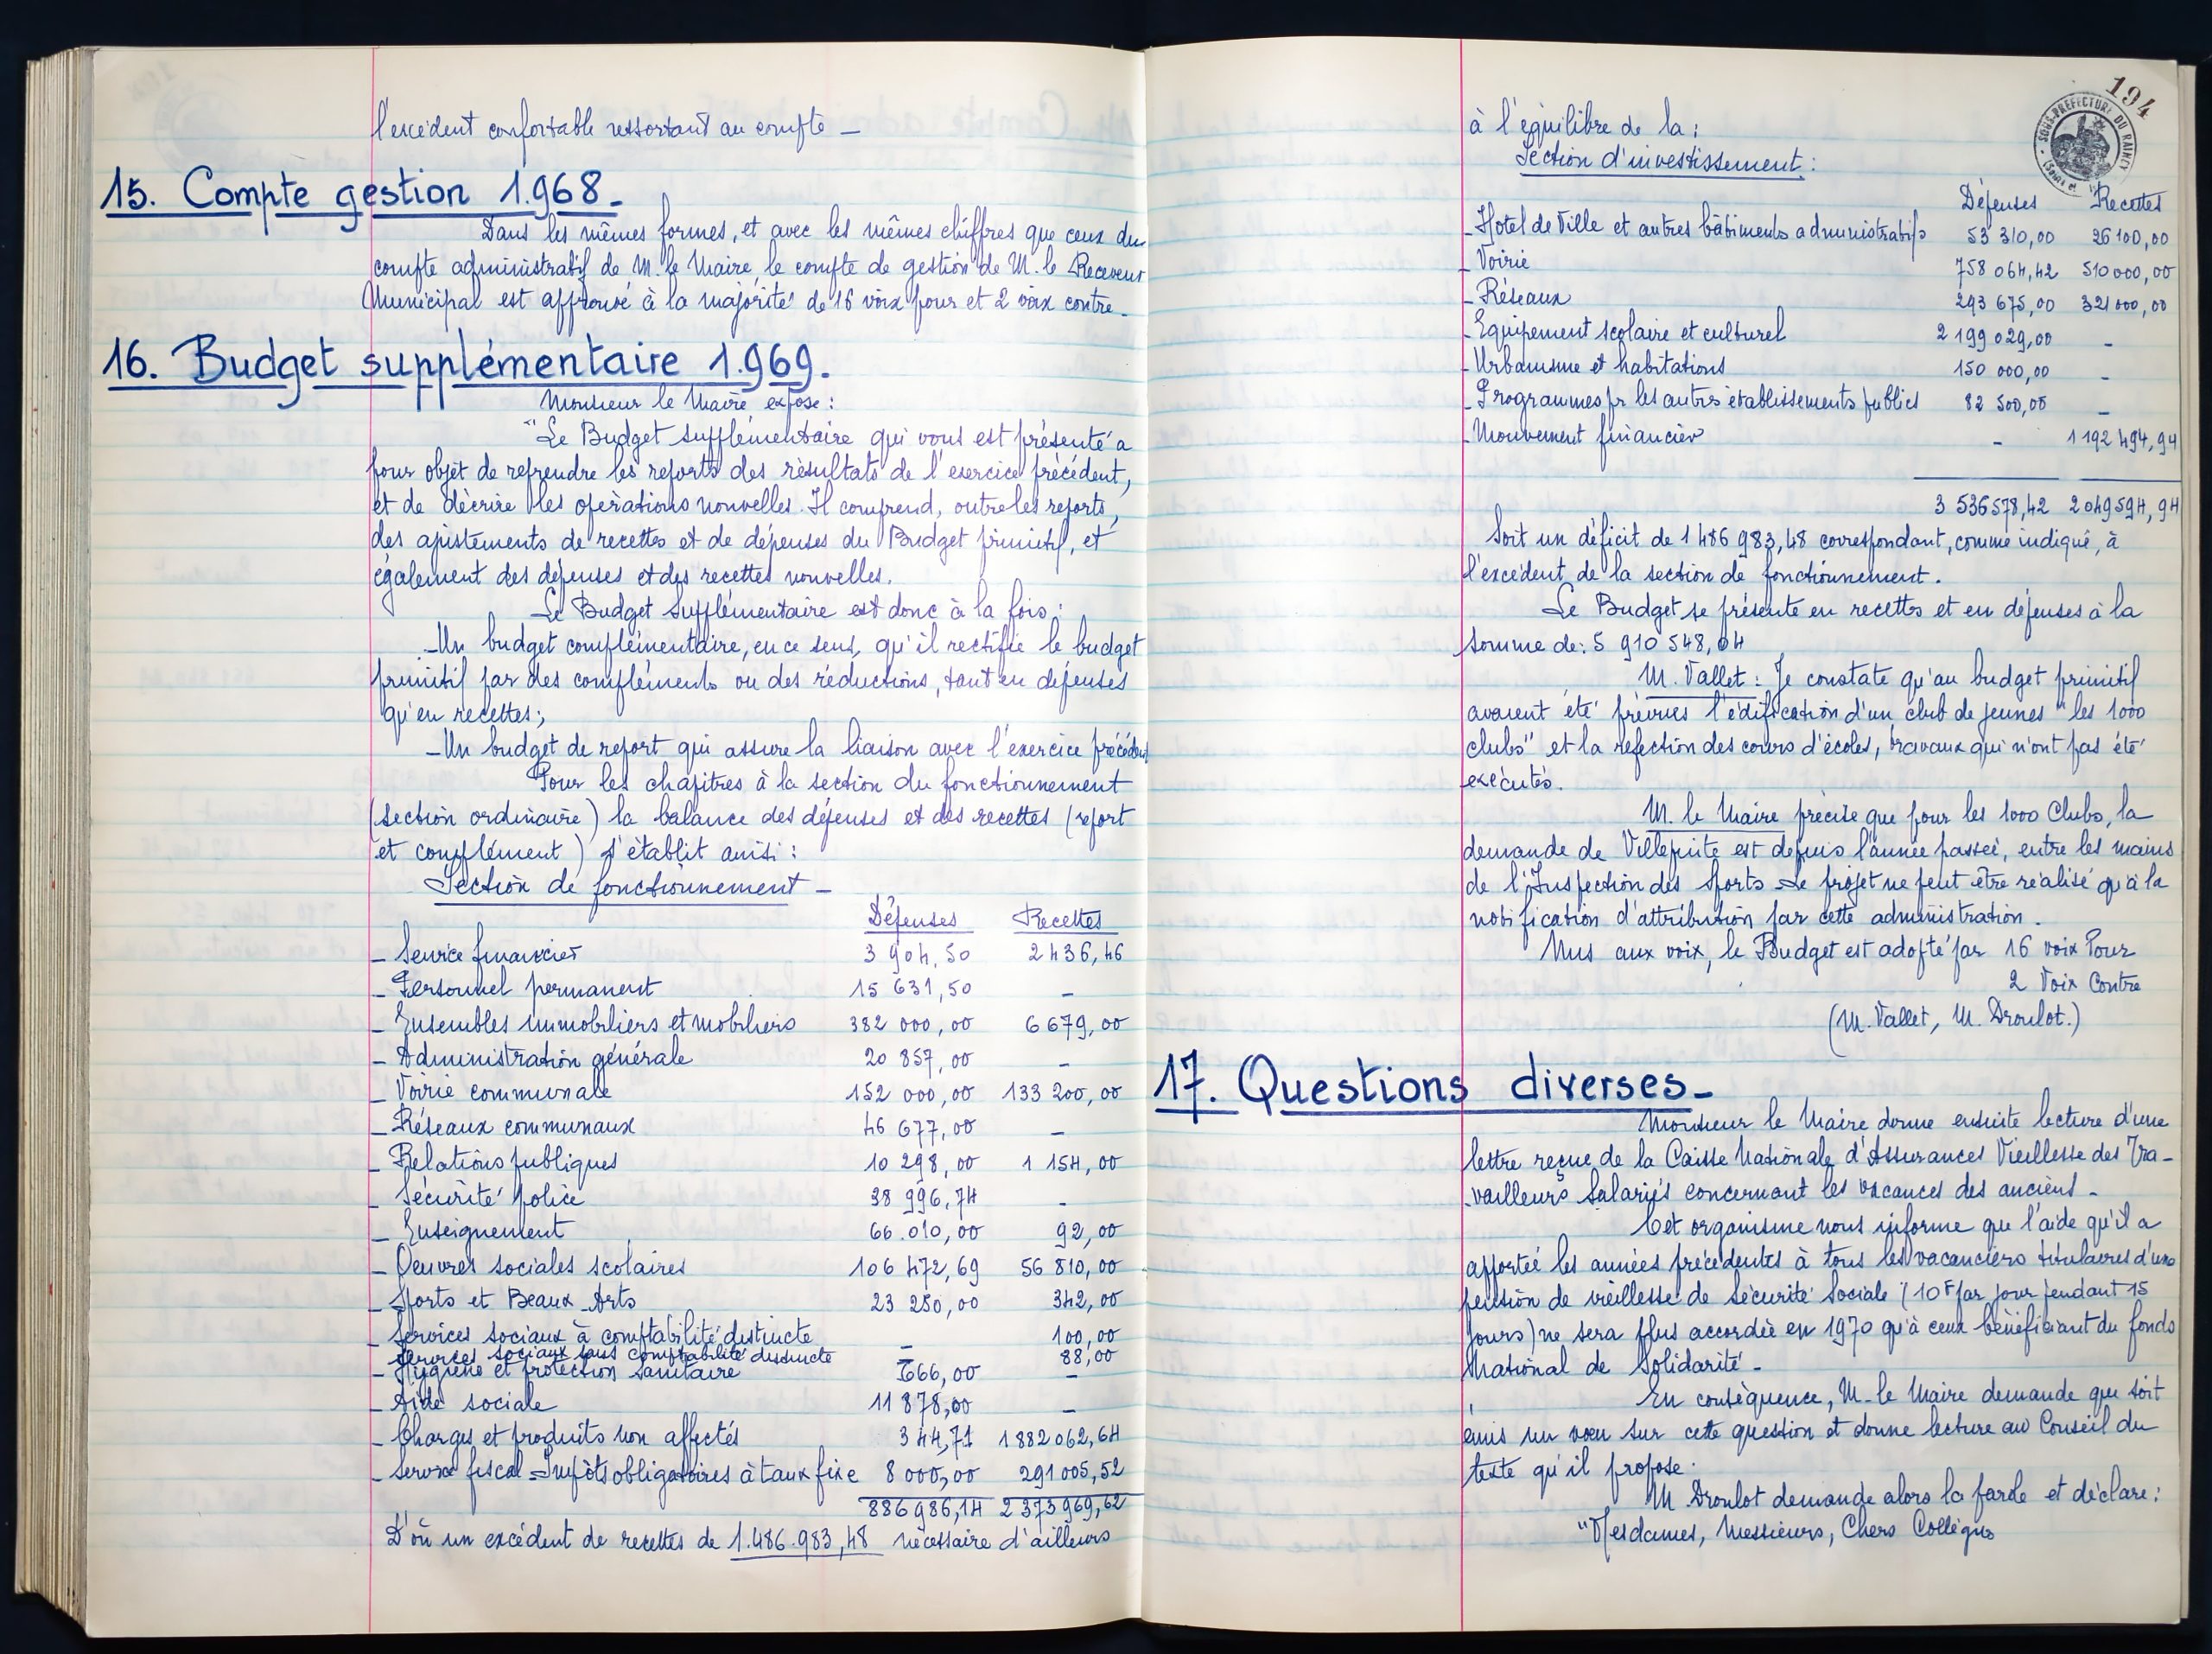 l'excédent confortable ressortant au compte _
15. Compte gestion 1.968_
Dans les mêmes formes, et avec les mêmes chiffres que ceux du
compte administratif de M. le Maire, le compte de gestion de M. le Receveur
Municipal est approuvé à la majorité de 16 voix pour et 2 voix contre_
16. Budget supplémentaire 1.969.
Monsieur le Maire expose :
"Le Budget supplémentaire qui vous est présenté a
pour objet de reprendre les reports des résultats de l'exercice précédent,
et de décrire les opérations nouvelles. Il comprend, outre les reports,
des ajustements de recettes et de dépenses du Budget primitif, et
également des dépenses et des recettes nouvelles.
Le Budget supplémentaire est donc à la fois :
_Un budget complémentaire, en ce sens, qu'il rectifie le budget
primitif par des compléments ou des réductions, tant en dépenses
qu'en recettes ;
_Un budget de report qui assure la liaison avec l'exercice précédent
Pour les chapitres à la section du fonctionnement
(section ordinaire) la balance des dépenses et des recettes (report
et complément) s'établit ainsi :
Section de fonctionnement _
Dépenses Recettes
_ Service financier 3 904,50 2 436,46
_ Personnel permanent 15 631,50 _
_ Ensembles immobiliers et mobiliers 382 000,00 6 679,00
_ Administration générale 20 857,00 _
_ Voirie communale 152 000,00 133 200,00
_ Réseaux communaux 46 677,00 _
_ Relations publiques 10 298,00 1 154,00
_ Sécurité police 38 996,74 _
_ Enseignement 66.010,00 92,00
_ Oeuvres sociales scolaires 106 472,69 56 810,00
_ Sports et Beaux-Arts 23 250,00 342,00
_ Services sociaux à comptabilité distincte 100,00
Services sociaux sans comptabilité distincte _ 88,00
_ Hygiène et protection sanitaire 666,00 _
_ Aide sociale 11 878,00 _
_ Charges et produits non affectés 344,71 1 882 062,64
_ Service fiscal = Impôts obligatoires à taux fixe 8 000,00 291 005,52
886 986,14 2 373 969,62
D'où un excédent de recettes de 1.486.983,48 nécessaire d'ailleurs
194
SOUS-PREFECTURE DU RAINCY
à l'équilibre de la :
Section d'investissement :
Dépenses Recettes
_ Hotel de Ville et autres bâtiments administratifs 53 310,00 26 100,00
_ Voirie 758 064,42 510 000,00
_ Réseaux 293 675,00 321 000,00
_ Equipement scolaire et culturel 2 199 029,00 _
_ Urbanisme et habitations 150 000,00 _
_ Programmes pr les autres établissements publics 82 500,00 _
_ Mouvement financier _ 1 192 494,94
3 536 578,42 2 049 594,94
Soit un déficit de 1 486 983,48 correspondant, comme indiqué, à
l'excédent de la section de fonctionnement.
Le Budget se présente en recettes et en dépenses à la
somme de : 5 910 548,04
M. Vallet : Je constate qu'au budget primitif
avaient été prévues l'édification d'un club de jeunes "les 1000
clubs" et la refection des cours d'écoles, travaux qui n'ont pas été
exécutés.
M. le Maire précise que pour les 1000 Clubs, la
demande de Villepinte est depuis l'année passée, entre les mains
de l'Inspection des Sports. Le projet ne peut être réalisé qu'à la
notification d'attribution par cette administration.
Mis aux voix, le Budget est adopté par 16 voix Pour
2 Voix Contre
(M. Vallet, M. Droulot.)
17. Questions diverses_
Monsieur le Maire donne ensuite lecture d'une
lettre reçue de la Caisse Nationale d'Assurances Vieillesse des Tra-
-vailleurs Salariés concernant les vacances des anciens_
Cet organisme nous informe que l'aide qu'il a
apportée les années précédentes à tous les vacanciers titulaires d'une
pension de vieillesse de Sécurité Sociale (10F par jour pendant 15
jours) ne sera plus accordée en 1970 qu'à ceux bénéficiant du fonds
National de Solidarité_
En conséquence, M. le Maire demande que soit
émis un voeu sur cette question et donne lecture au Conseil du
texte qu'il propose.
M. Droulot demande alors la parole et déclare :
"Mesdames, Messieurs, Chers Collègues